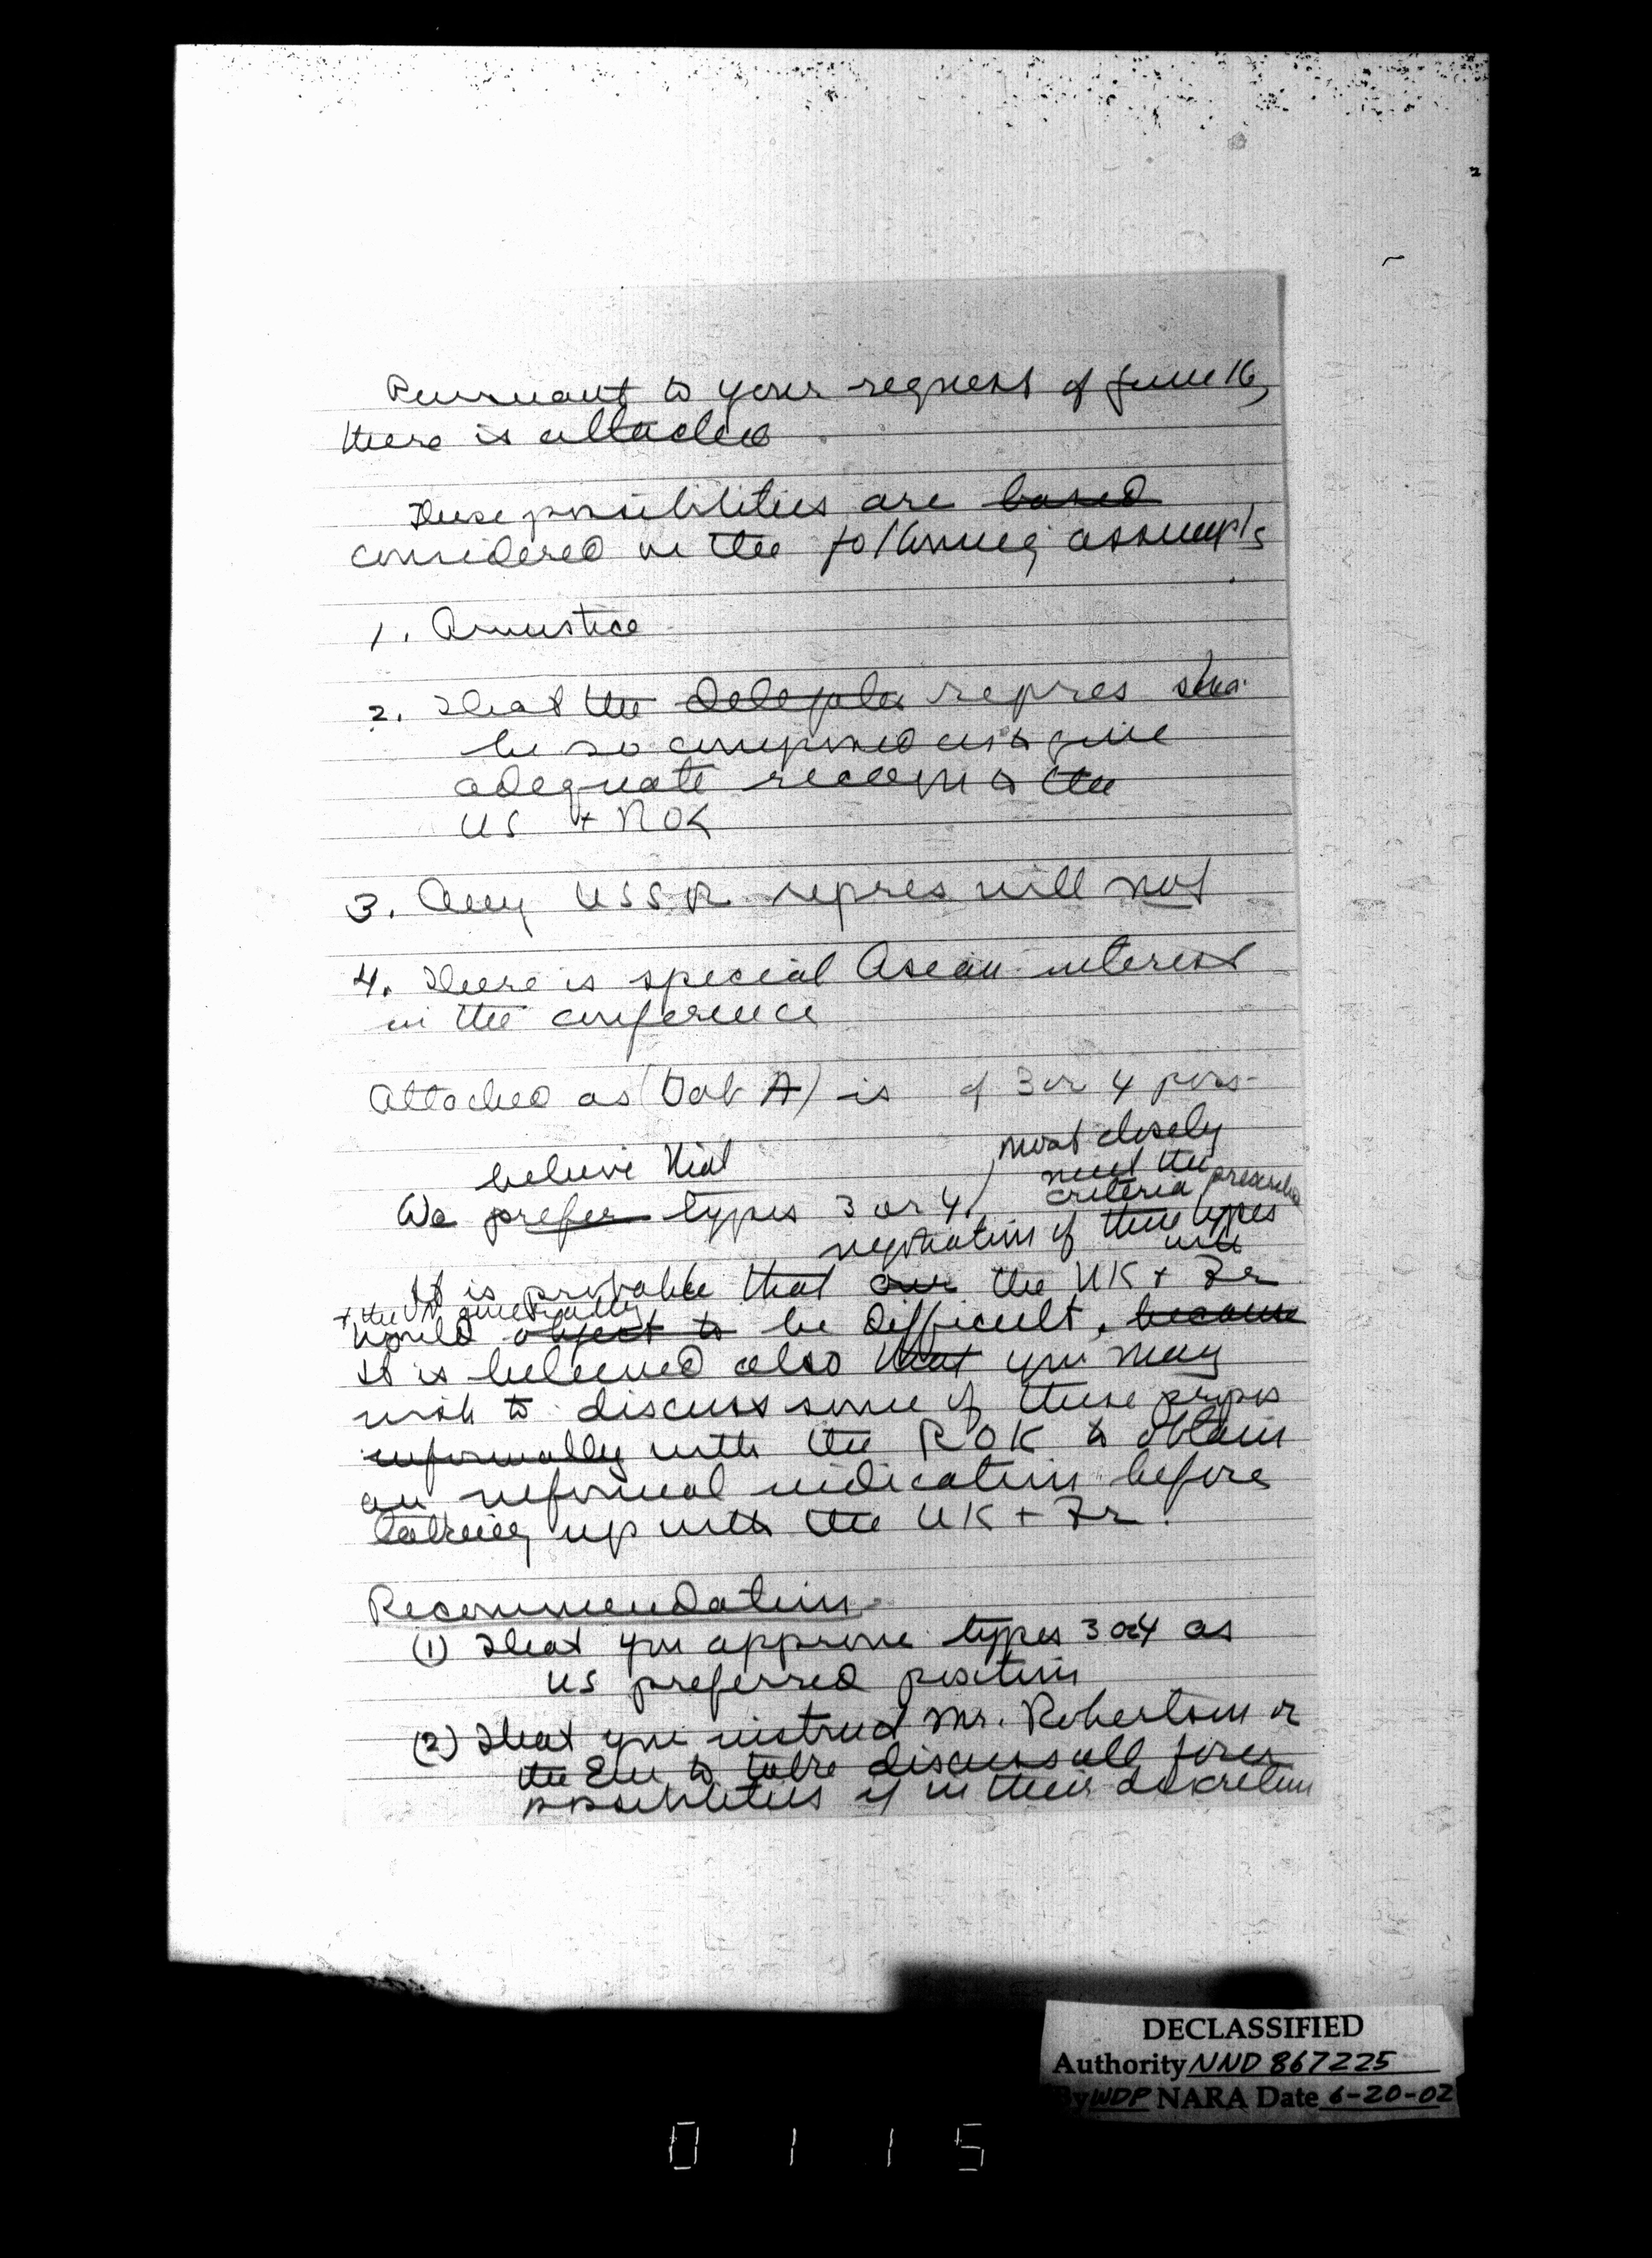 Pursuant to your request of June 16,
there is attached
These possibilities are based
considered on the following assumpts
1. Armistice
2. That the delegates repres shd
be so composed as to give
adequate recogn to the
US + ROK
3. Any USSR repres will not
4. There is special Asean interest
in the conference
Attached as (Tab A) is of 3 or 4 poss-
believe that most closely
meet the
criteria
We prefer types 3 or 4,
negotiation of these types
with
It is probable that our the UK + Fr
+ the UN generally
would object to be difficult, because
It is believed also that you may
wish to discuss some of these
informally with the ROK to obtain
an informal indication before
taking up with the UK + Fr.
Recommendation
(1) That you approve types 3 or 4 as
US preferred position
(2) That you instruct Mr. Robertson or
the Em to take discuss all four
possibilities if in their discretion
DECLASSIFIED
Authority NND 867225
By WDP NARA Date 6-20-02
0 1 1 5